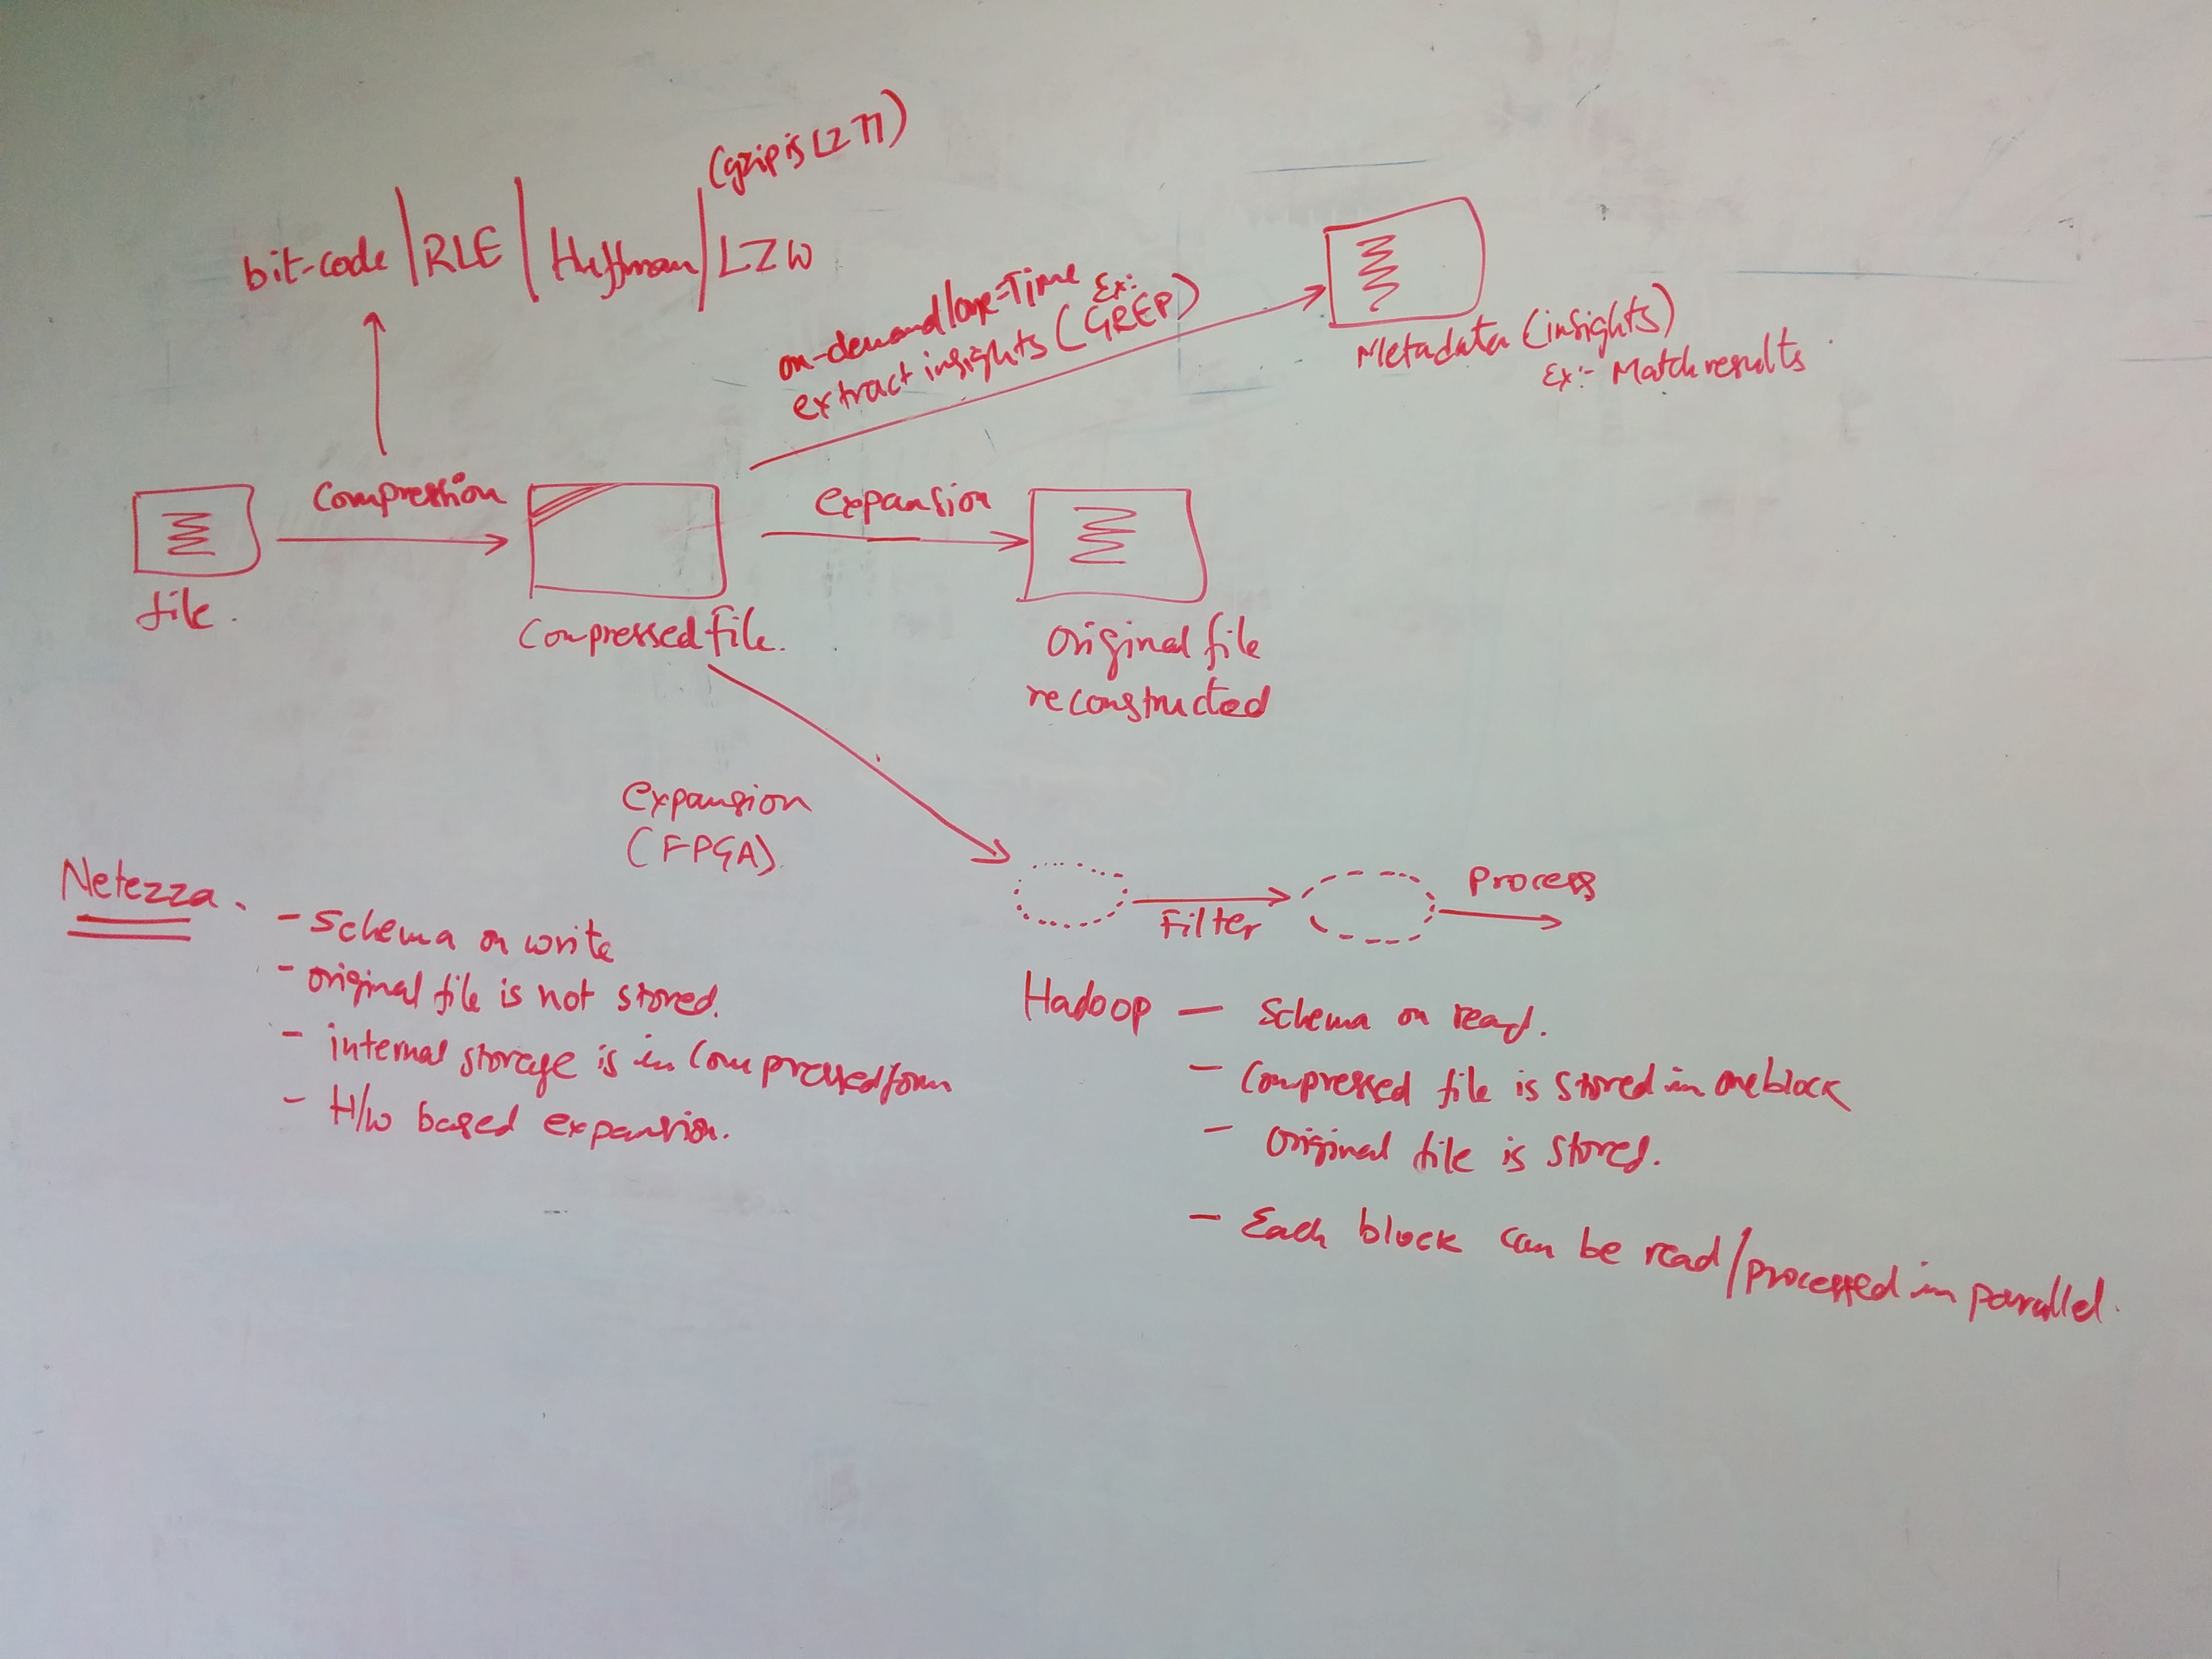 (gzip is LZ77)
bit-code | RLE | Huffman | LZW
on-demand/one-Time Ex:
extract insights (GREP)
Metadata (insights)
Ex:- Match results
Compression
Expansion
file.
Compressed file.
Original file
reconstructed
Expansion
(FPGA)
Filter
Process
Netezza.
- Schema on write
- original file is not stored.
- internal storage is in Compressed form
- H/w based expansion.
Hadoop - Schema on read.
- Compressed file is stored in one block
- Original file is stored.
- Each block can be read/processed in parallel.